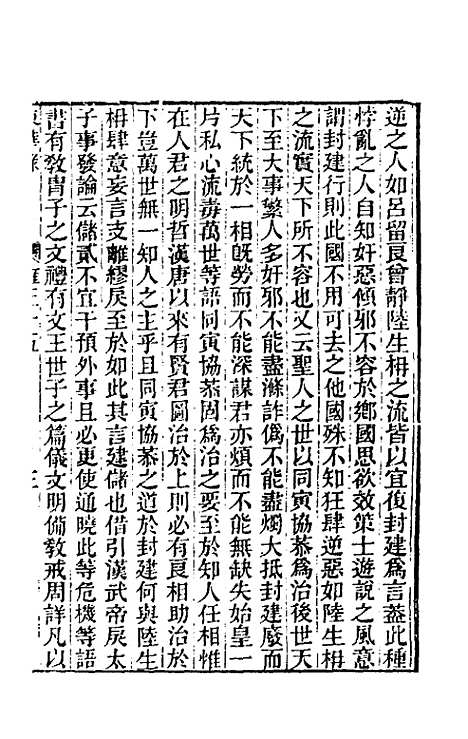 逆之人如呂留良曾靜陸生枏之流皆以宜復封建爲言蓋此種
悖亂之人自知奸惡傾邪不容於鄉國思欲效策士遊說之風意
謂封建行則此國不用可去之他國殊不知狂肆逆惡如陸生枏
之流實天下所不容也又云聖人之世以同寅協恭爲治後世天
下至大事繁人多奸邪不能盡滌詐僞不能盡燭大抵封建廢而
天下統於一相旣勞而不能深謀君亦煩而不能無缺失始皇一
片私心流毒萬世等語同寅協恭固爲治之要至於知人任相惟
在人君之明哲漢唐以來有賢君圖治於上則必有良相助治於
下豈萬世無一知人之主乎且同寅協恭之道於封建何與陸生
枏肆意妄言支離繆戾至於如此其言建儲也借引漢武帝戾太
子事發論云儲貳不宜干預外事且必更使通曉此等危機等語
書有敎冑子之文禮有文王世子之篇儀文明備敎戒周詳凡以
東華錄 雍正十五